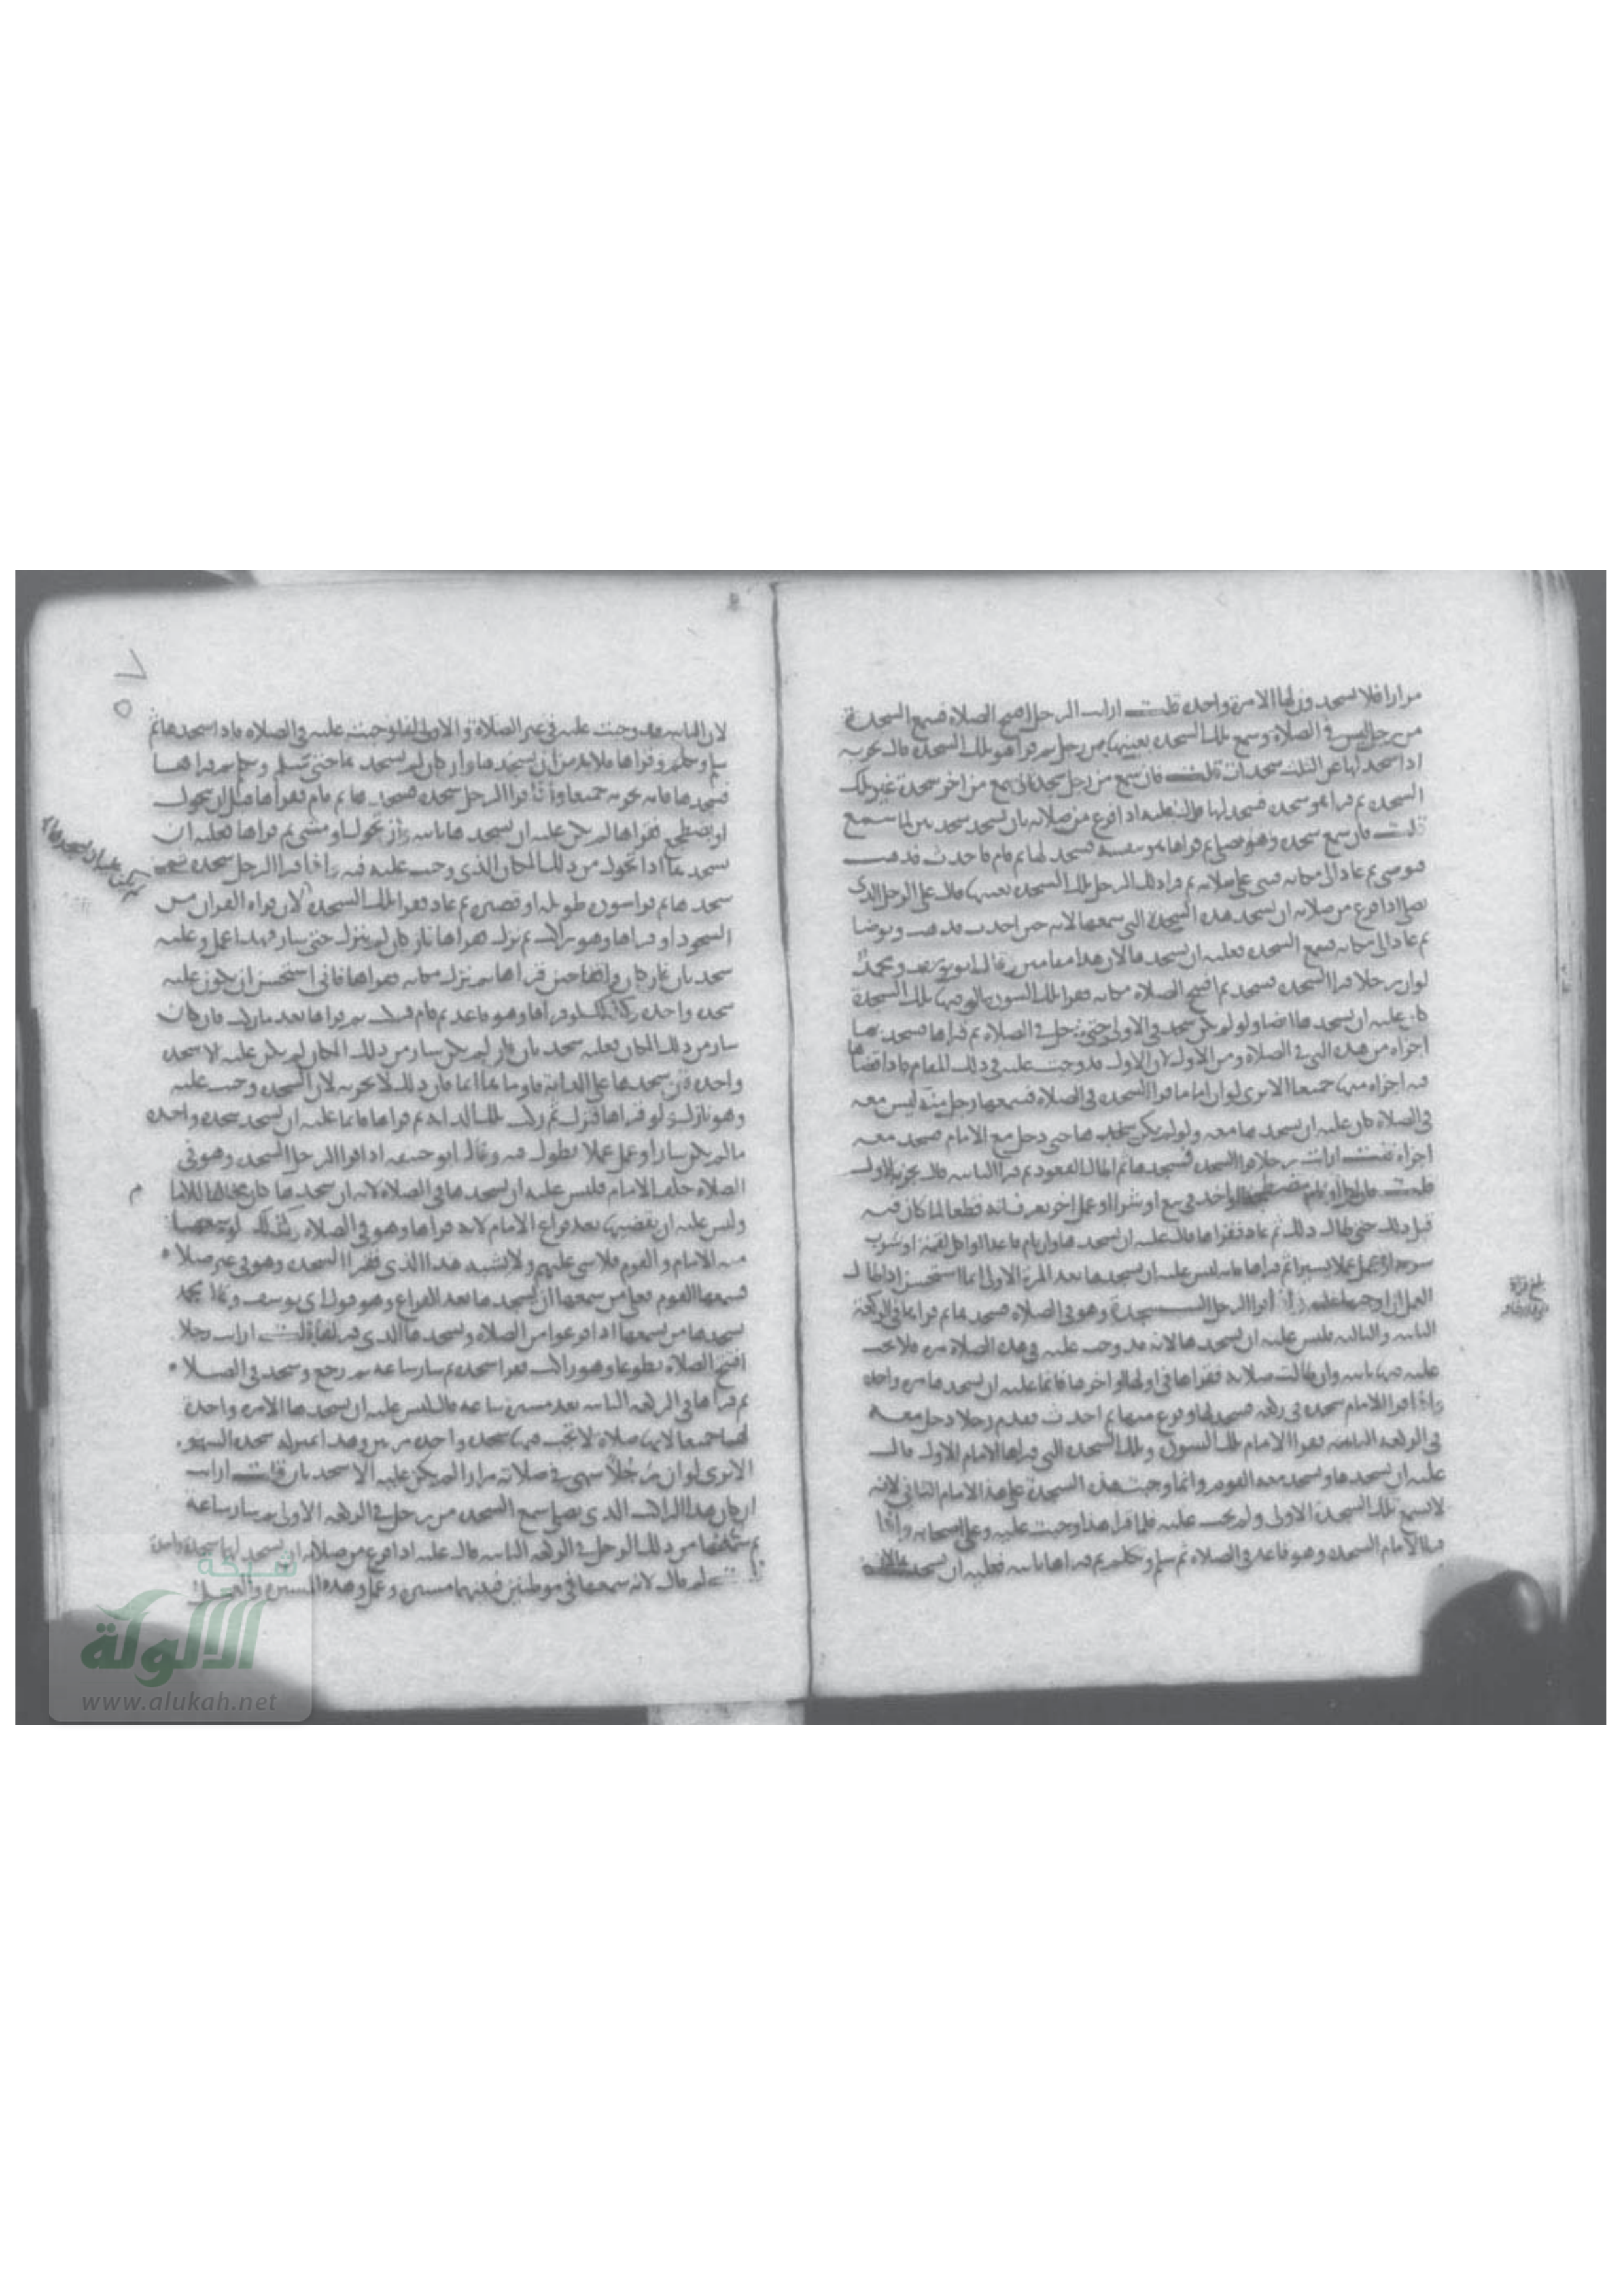 مرارا فلا يسجدون لها الا مرة واحدة قلت ارايت الرجل افتتح الصلاة فسمع السجدة
من رجل ليس في الصلاة وسمع تلك السجدة بعينها من رجل ثم قراها هو تلك السجدة قال يجزيه
اذا سجد لها عن الثلث سجدات قلت فان سمع من رجل سجدة ثم سمع من اخر سجدة غير تلك
السجدة ثم قرا هو سجدة فسجد لها قال عليه اذا فرغ من صلاته بان يسجد سجدتين لما سمع
قلت فان سمع سجدة وهو يصلي ثم قراها هو بنفسه فسجد لها ثم قام فاحدث فذهب
فتوضى ثم عاد الى مكانه فبنى على صلاته ثم قرا ذلك الرجل تلك السجدة بعينها قال على الرجل الذي
يصلي اذا فرغ من صلاته ان يسجد هذه السجدة التي سمعها لانه حين احدث فذهب وتوضا
ثم عاد الى مكانه فسمع السجدة فعليه ان يسجدها لان هذا مقامين وقال ابو يوسف ومحمد
لو ان رجلا قرا السجدة فسجد ثم افتتح الصلاة مكانه فقرا تلك السورة التي فيها تلك السجدة
كان عليه ان يسجدها ايضا ولو لم يكن سجد في الاولى حتى دخل في الصلاة ثم قراها فسجد بها
اجزاه من هذه التي في الصلاة ومن الاولى لان الاولى قد وجبت عليه في ذلك المقام فاذا قضاها
فيه اجزاه منها جميعا الا ترى لو ان اماما قرا السجدة في الصلاة فسمعها رجل منه ليس معه
في الصلاة كان عليه ان يسجدها معه ولو لم يكن سجدها حتى دخل مع الامام فسجد معه
اجزاه قلت ارايت رجلا قرا السجدة فسجدها ثم اطال القعود ثم قرا الثانية قال يجزيه الاولى
قلت فان اخذ في بيع او شرا او عمل اخر يعرف انه قطعا لما كان فيه
قبل ذلك حتى طال ذلك ثم عاد فقراها قال عليه ان يسجدها وان نام قاعدا او اكل لقمة او شرب
شربة او عمل عملا يسيرا ثم قراها فانه ليس عليه ان يسجدها بعد المرة الاولى انما استحسن اذا طال
العمل ان اوجبها عليه واذا قرا الرجل السجدة وهو في الصلاة فسجدها ثم قراها في الركعة
الثانية والثالثة فليس عليه ان يسجدها لانه قد وجب عليه في هذه الصلاة مرة فلا يجب
عليه فيها ثانية وان طالت صلاته فقراها في اولها واخرها فانما عليه ان يسجدها مرة واحدة
واذا قرا الامام سجدة في ركعة فسجد لها وفرغ منها ثم احدث فقدم رجلا دخل معه
في الركعة الثانية فقرا الامام تلك السورة وتلك السجدة التي قراها الامام الاول قال
عليه ان يسجدها ويسجد معه القوم وانما وجبت هذه السجدة على هذا الامام الثاني لانه
لم يسمع تلك السجدة الاولى ولم تجب عليه فلما قراها هذا وجبت عليه وعلى اصحابه واذا
قرا الامام السجدة وهو قاعد في الصلاة ثم سلم وتكلم ثم قراها ثانية فعليه ان يسجد
بلغ قراة
لان الثانية قد وجبت عليه في غير الصلاة والاولى انما وجبت عليه في الصلاة فاذا سجدها ثم
سلم وتكلم وقراها فلا بد من ان يسجدها وان كان لم يسجدها حتى سلم وتكلم ثم قراها
فسجدها فانه يجزيه جميعا واذا قرا الرجل سجدة فسجدها ثم قام فقراها قبل ان يتحول
او يضطجع فقراها لم يكن عليه ان يسجدها ثانية وان تحول او مشى ثم قراها فعليه ان
يسجدها اذا تحول من ذلك المكان الذي وجب عليه فيه واذا قرا الرجل سجدة
سجدها ثم قرا سورة طويلة او قصيرة ثم عاد فقرا تلك السجدة لان قراة القران من
لم يكن عليه ان يسجدها
السجود او قراها وهو راكب ثم نزل فقراها فان كان لم ينزل حتى سار فهذا عمل وعليه
سجدتان فان كان واقفا حين قراها ثم نزل مكانه فقراها فاني استحسن ان يكون عليه
سجدة واحدة وكذلك لو قراها وهو قاعد ثم قام فركب ثم قراها بعد ما ركب فان كان
سار من ذلك المكان فعليه سجدتان وان لم يكن سار من ذلك المكان لم يكن عليه الا سجدة
واحدة فان سجدها على الدابة فاومابها ايما فان ذلك لا يجزيه لان السجدة وجبت عليه
وهو نازل ولو قراها فنزل ثم ركب تلك الدابة ثم قراها فانما عليه ان يسجد سجدة واحدة
ما لم يكن سار او عمل عملا يطول فيه وقال ابو حنيفة اذا قرا الرجل السجدة وهو في
الصلاة خلف الامام فليس عليه ان يسجدها في الصلاة لانه ان سجدها كان مخالفا للاما م
وليس عليه ان يقضيها بعد فراغ الامام لانه قراها وهو في الصلاة وكذلك لو سمعها
منه الامام والقوم فلا شي عليهم ولا يشبه هذا الذي فقرا السجدة وهو في غير صلاة
فسمعها القوم فعلى من سمعها ان يسجدها بعد الفراغ وهو قول ابي يوسف وقال محمد
يسجدها من يسمعها اذا فرغوا من الصلاة ويسجدها الذي قراها قلت ارايت رجلا
افتتح الصلاة تطوعا وهو راكب فقرا سجدة ثم سار ساعة ثم رجع وسجد في الصلاة
ثم قراها في الركعة الثانية بعد مسيرة ساعة قال ليس عليه ان يسجدها الا مرة واحدة
لهما جميعا لانها صلاة لا تجب فيها سجدة واحدة مرتين وهذا بمنزلة سجدة السهو
الا ترى لو ان رجلا سهى في صلاته مرارا لم يكن عليه الا سجدتان قلت ارايت
ان كان هذا الراكب الذي يصلي سمع السجدة من رجل في الركعة الاولى ثم سار ساعة
ثم سمعها من ذلك الرجل في الركعة الثانية قال عليه اذا فرغ من صلاته ان يسجد لها سجدة واحدة
قلت لم قال لانه سمعها في موطنين فبينهما مسيرة وعمل وهذه المسيرة والعمل
شبكة
الألوكة
www.alukah.net